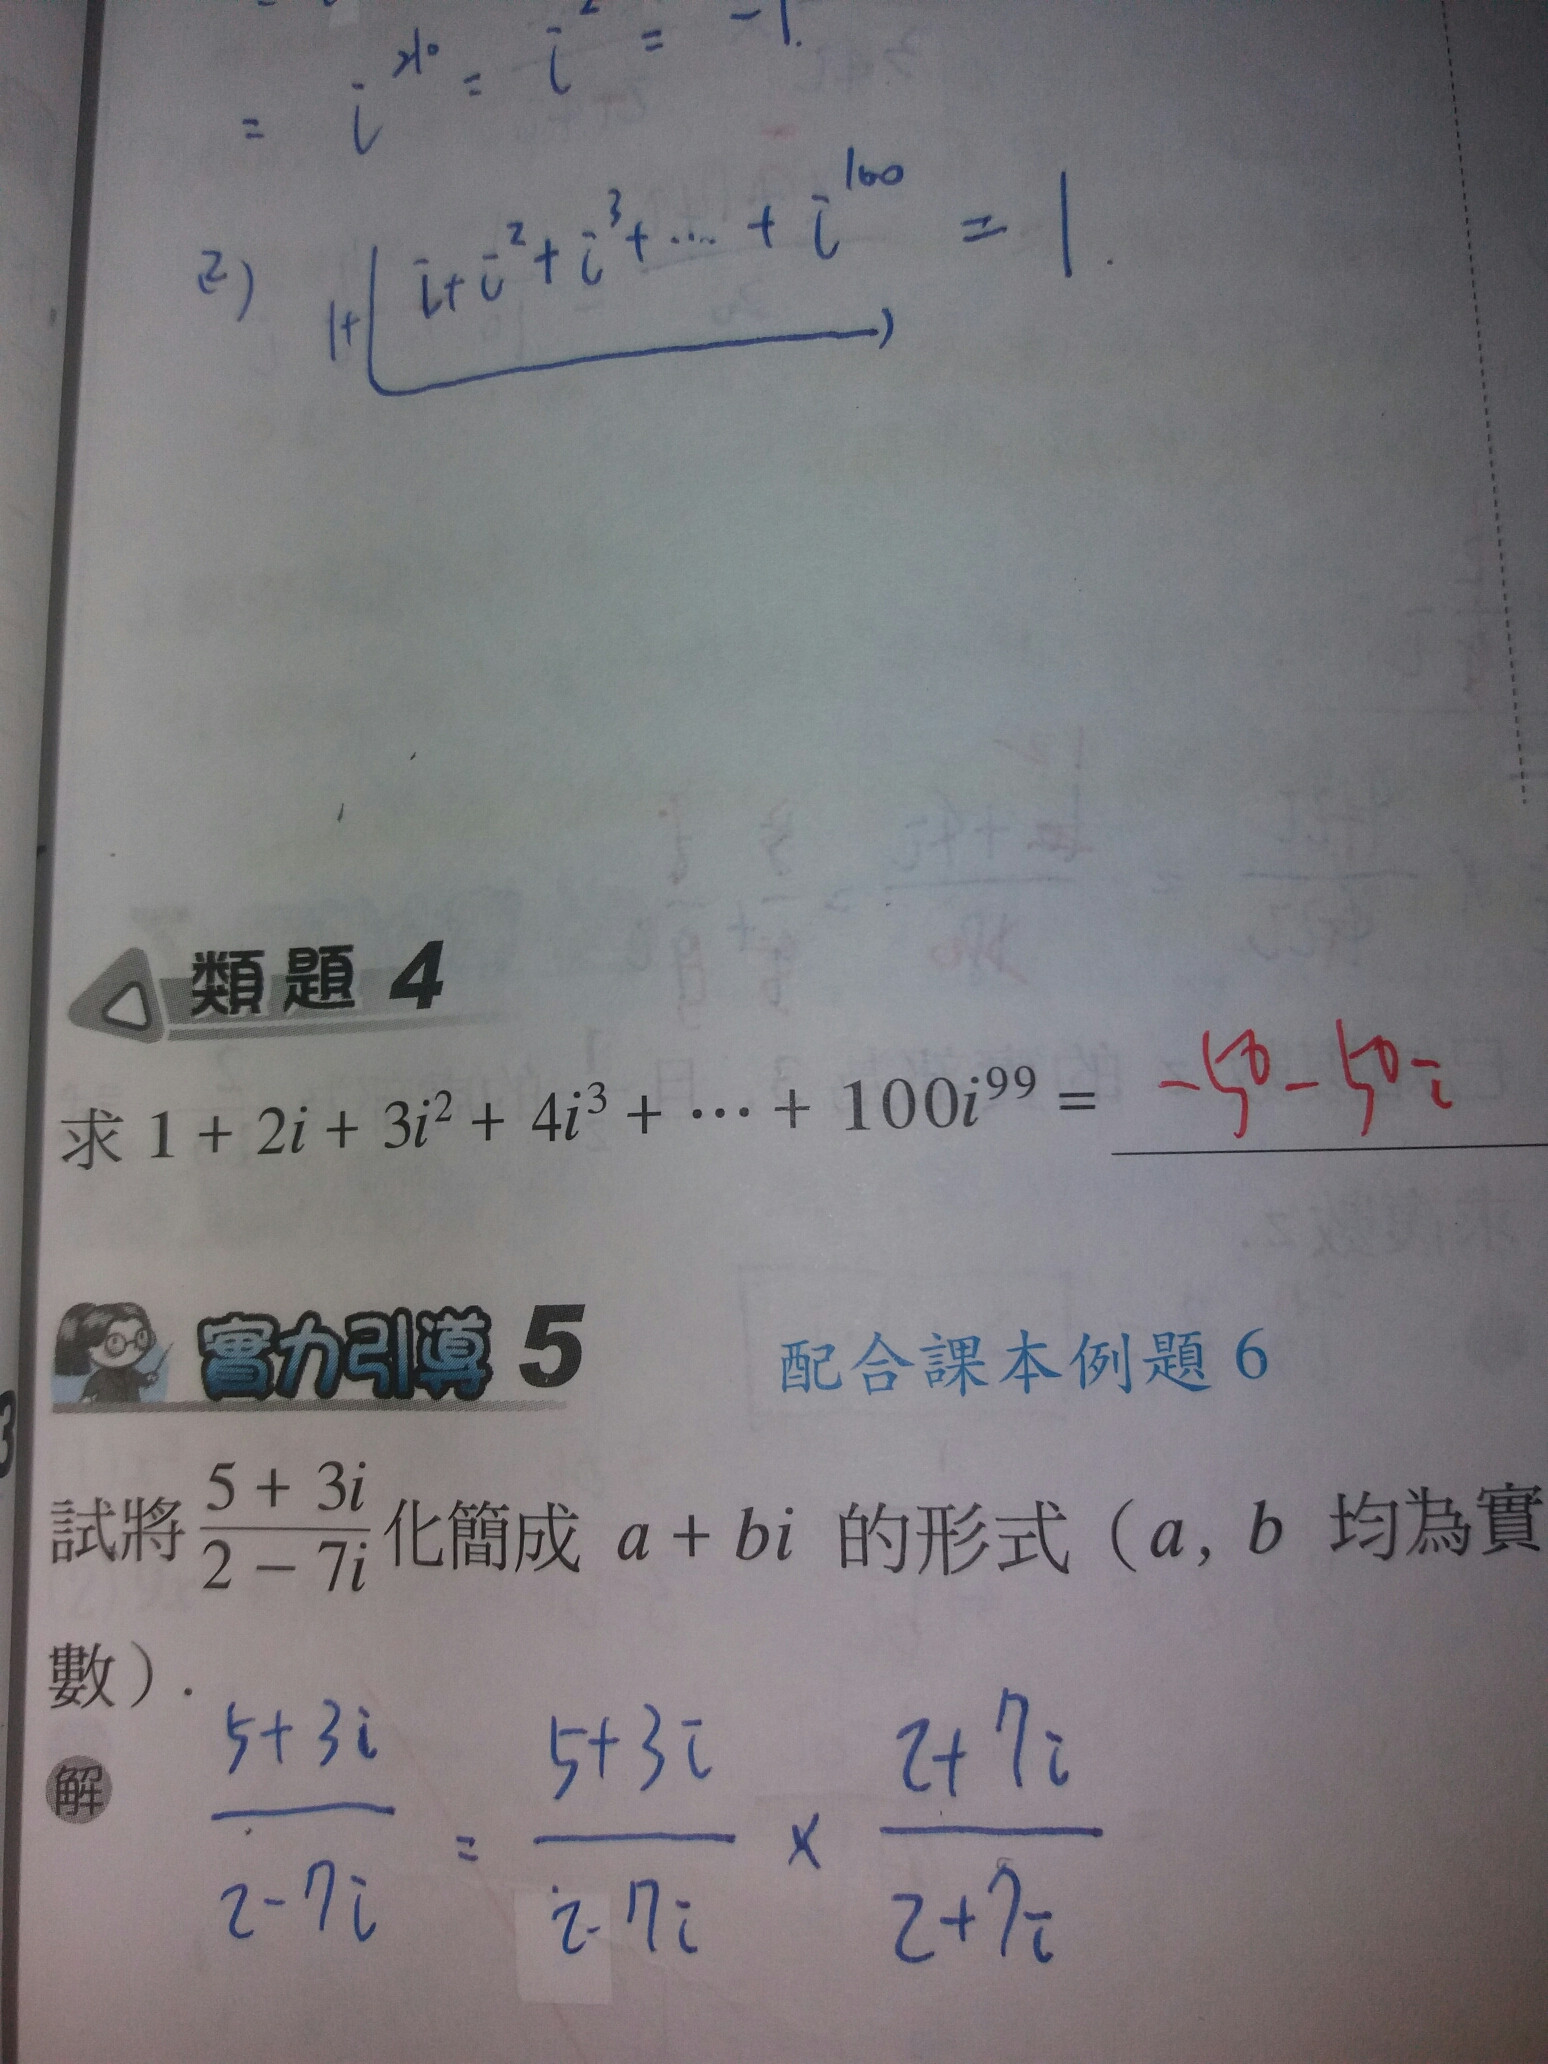 = i²¹⁰ = i² = -1.
2) 1+(i+i²+i³+...+i¹⁰⁰) = 1.
類題 4
求 1 + 2i + 3i² + 4i³ + ⋯ + 100i⁹⁹ = -50-50i
實力引導 5 配合課本例題 6
試將 (5 + 3i)/(2 − 7i) 化簡成 a + bi 的形式（a, b 均為實
數）.
解 (5+3i)/(2-7i) = (5+3i)/(2-7i) × (2+7i)/(2+7i)